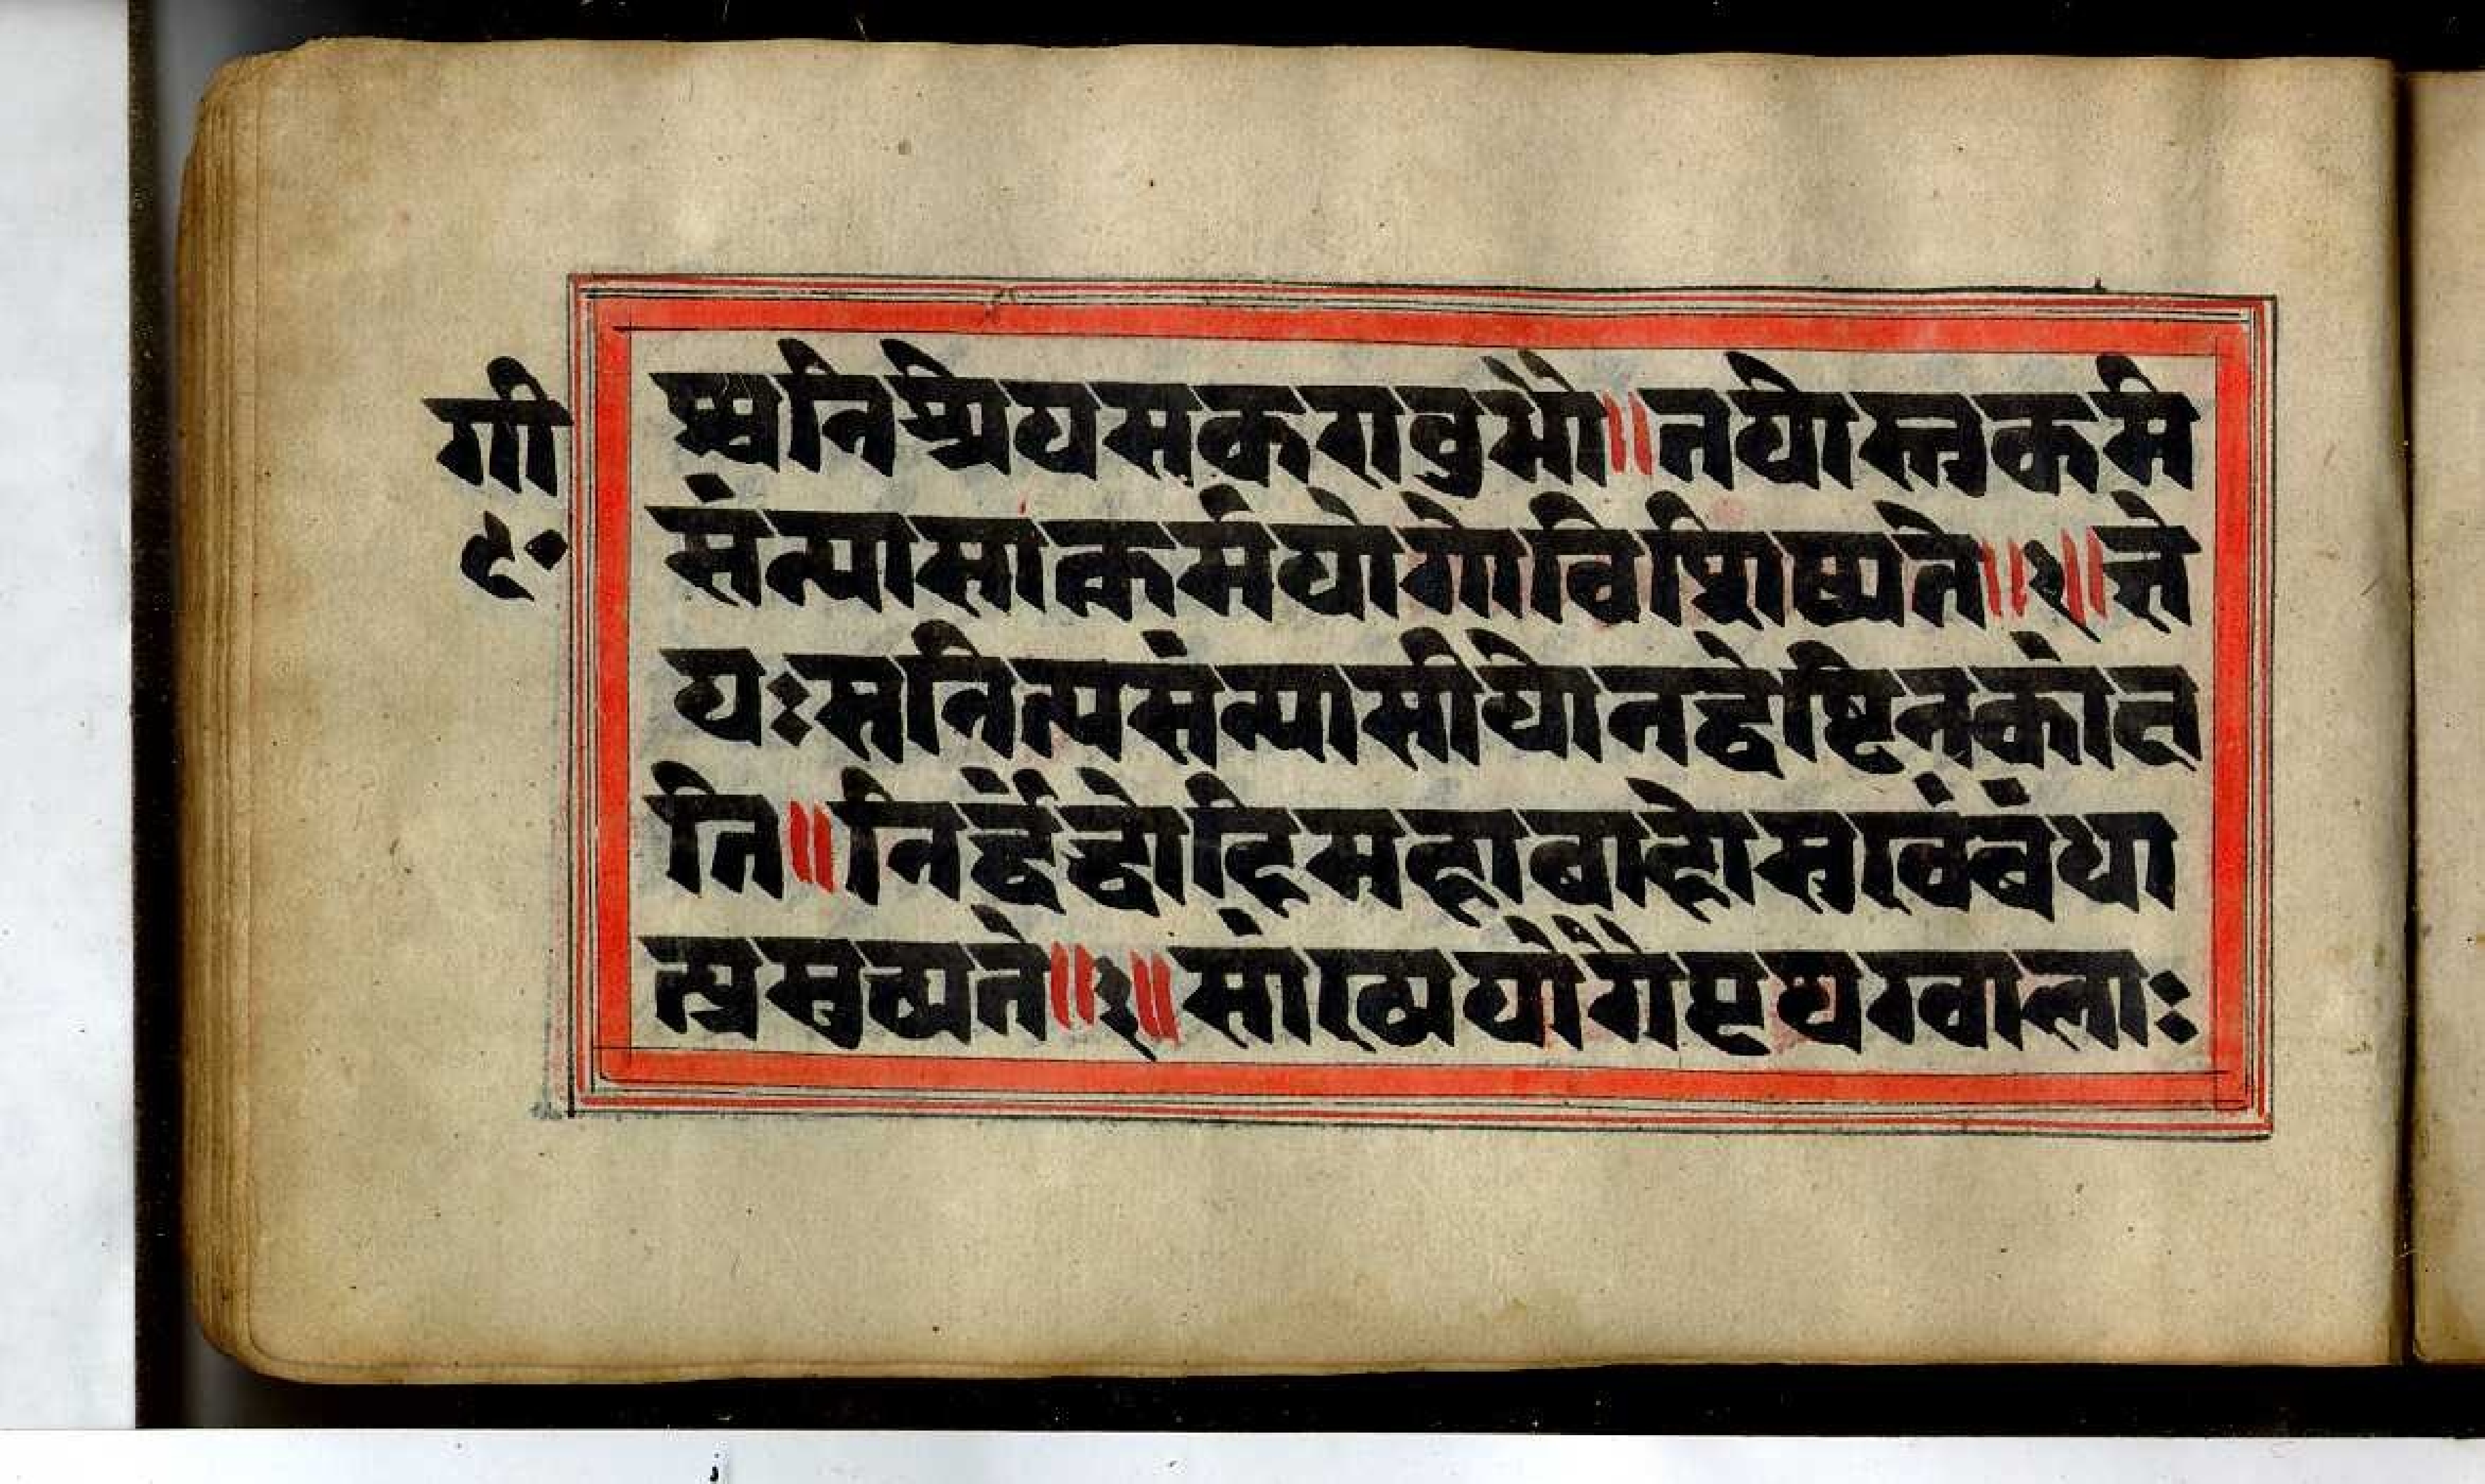 गी
९०
श्चनिश्रेयसकरावुभौ॥तयोस्तुकर्म
संन्यासात्कर्मयोगोविशिष्यते॥२॥ज्ञे
यःसनित्यसंन्यासीयोनद्वेष्टिनकांक्ष
ति॥निर्द्वंद्वोहिमहाबाहोसुखंबंधा
त्प्रमुच्यते॥३॥सांख्ययोगौपृथग्बालाः